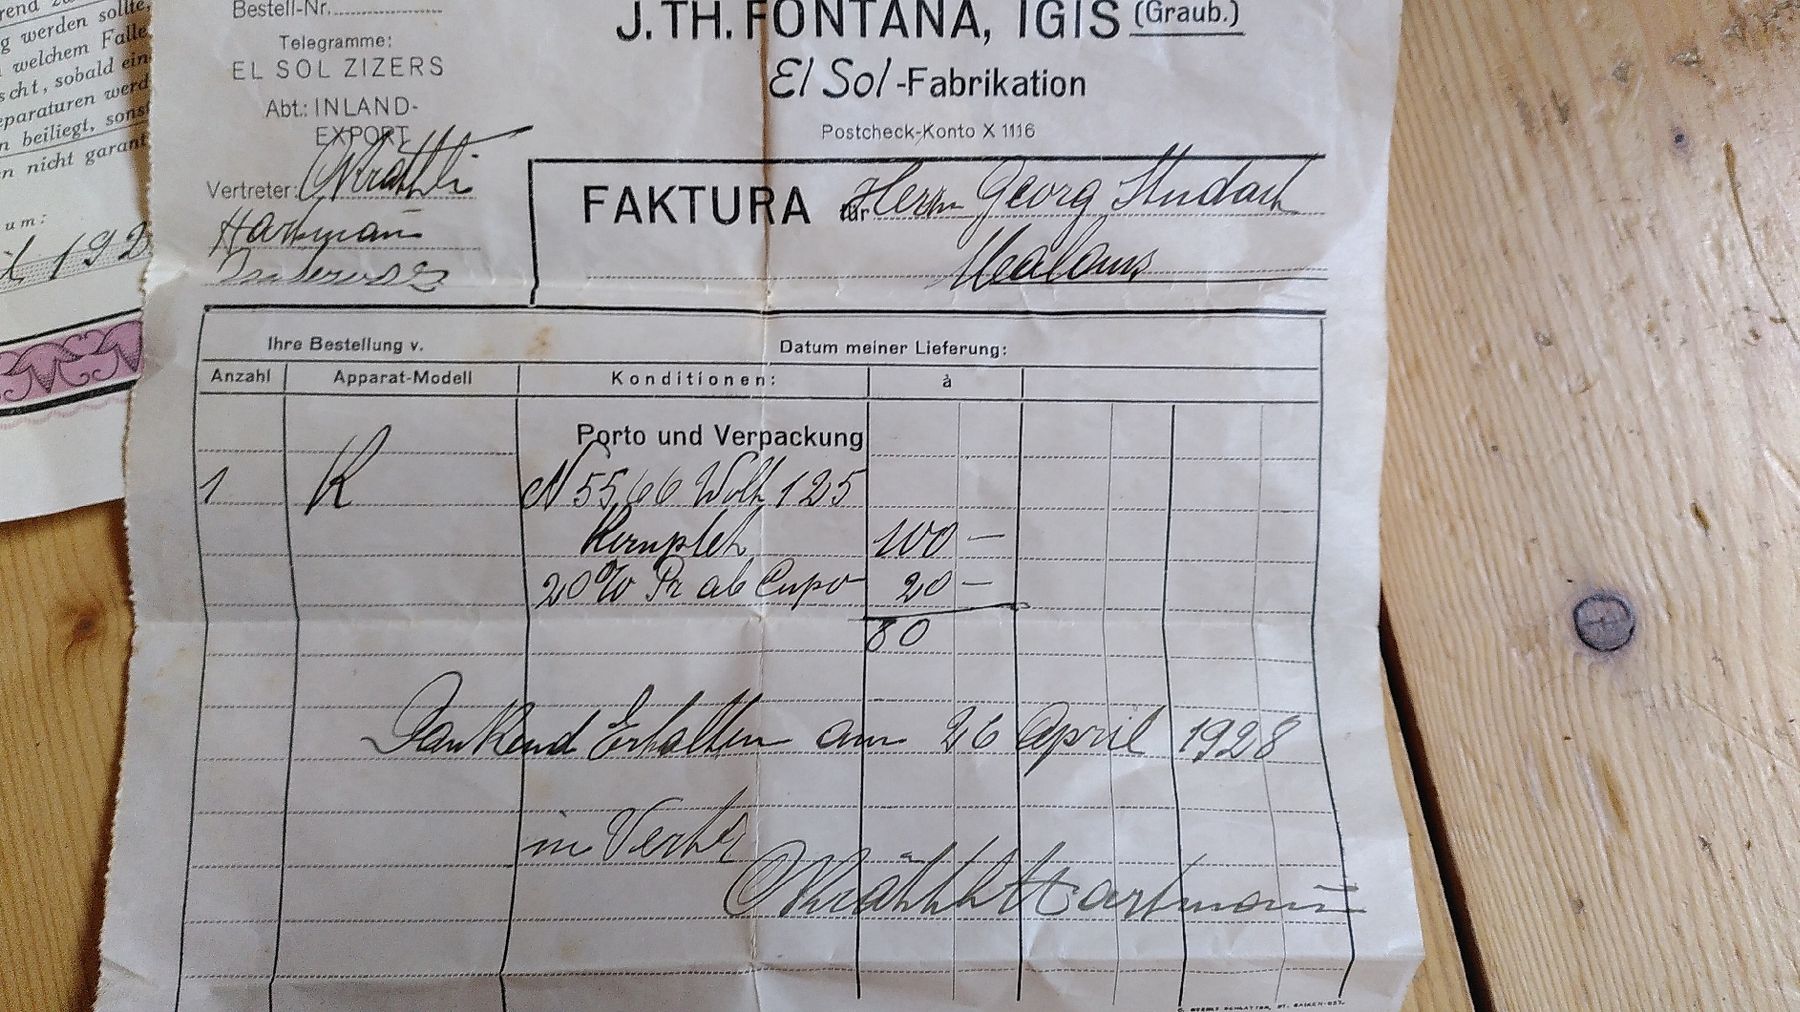 g werden sollte,
welchem Falle
scht, sobald ein
eparaturen werd
n beiliegt, sonst
n nicht garant
um:
192
Bestell-Nr.
Telegramme:
EL SOL ZIZERS
Abt.: INLAND-
EXPORT
Vertreter:
Hartmann
J. TH. FONTANA, IGIS (Graub.)
El Sol-Fabrikation
Postcheck-Konto X 1116
FAKTURA für Herrn Georg Studach
Malans
Ihre Bestellung v. Datum meiner Lieferung:
Anzahl Apparat-Modell Konditionen: à
Porto und Verpackung
1 K N 5566 Volt 125
Komplet 100 —
20% ab 20 —
80
Dankend Erhalten am 26 April 1928
in Vertr
Hartmann